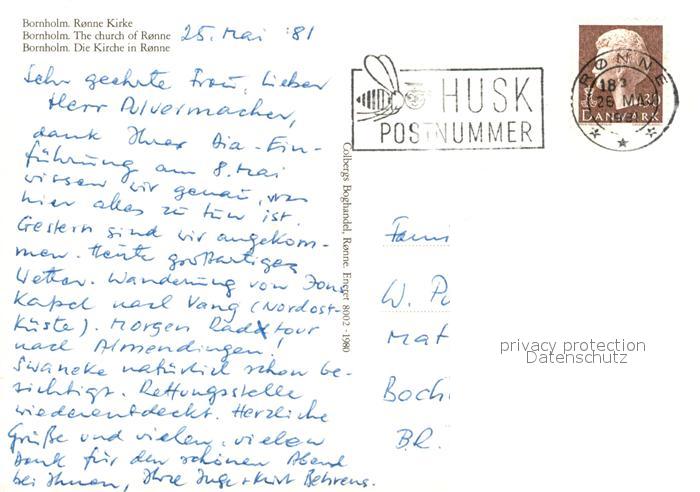 Bornholm. Rønne Kirke
Bornholm. The church of Rønne
Bornholm. Die Kirche in Rønne
25. Mai '81
Sehr geehrte Frau, Lieber
Herr Pulvermacher,
dank Ihrer Dia-Ein-
führung am 8. Mai
wissen wir genau, was
hier alles zu tun ist.
Gestern sind wir angekom-
men. Heute großartiges
Wetter. Wanderung von Jons
Kapel nach Vang (Nordost-
Küste). Morgen Radtour
nach Almendingen!
Svaneke natürlich schon be-
sichtigt. Rettungsstelle
wiederentdeckt. Herzliche
Grüße und vielen, vielen
Dank für den schönen Abend
bei Ihnen, Ihre Inge + Kurt Behrens.
Colbergs Boghandel, Rønne. Eneret 8002 - 1980
HUSK
POSTNUMMER
RØNNE
26 MAJ
DANMARK
Fami
W. Pu
Mat
Boch
BRD
privacy protection
Datenschutz